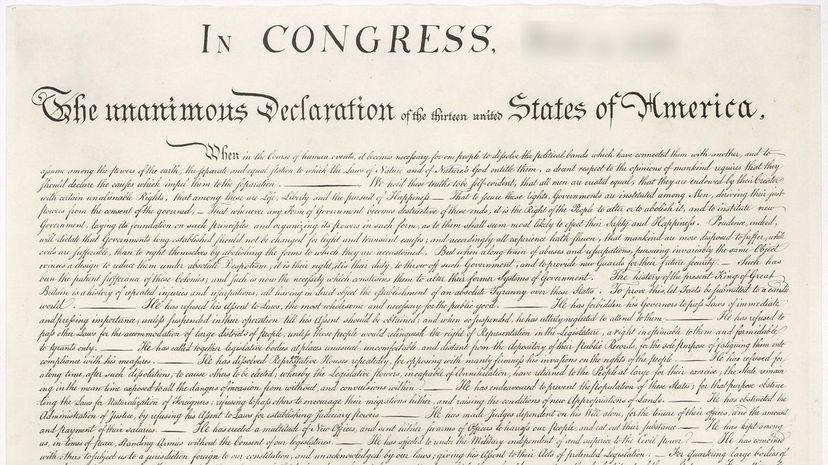 IN CONGRESS,
The unanimous Declaration of the thirteen united States of America,
When in the Course of human events, it becomes necessary for one people to dissolve the political bands which have connected them with another, and to
assume among the powers of the earth, the separate and equal station to which the Laws of Nature and of Nature's God entitle them, a decent respect to the opinions of mankind requires that they
should declare the causes which impel them to the separation. We hold these truths to be self-evident, that all men are created equal, that they are endowed by their Creator
with certain unalienable Rights, that among these are Life, Liberty and the pursuit of Happiness.— That to secure these rights, Governments are instituted among Men, deriving their just
powers from the consent of the governed, — That whenever any Form of Government becomes destructive of these ends, it is the Right of the People to alter or to abolish it, and to institute new
Government, laying its foundation on such principles and organizing its powers in such form, as to them shall seem most likely to effect their Safety and Happiness. Prudence, indeed,
will dictate that Governments long established should not be changed for light and transient causes; and accordingly all experience hath shewn, that mankind are more disposed to suffer, while
evils are sufferable, than to right themselves by abolishing the forms to which they are accustomed. But when a long train of abuses and usurpations, pursuing invariably the same Object
evinces a design to reduce them under absolute Despotism, it is their right, it is their duty, to throw off such Government, and to provide new Guards for their future security.— Such has
been the patient sufferance of these Colonies; and such is now the necessity which constrains them to alter their former Systems of Government. The history of the present King of Great
Britain is a history of repeated injuries and usurpations, all having in direct object the establishment of an absolute Tyranny over these States. To prove this, let Facts be submitted to a candid
world. He has refused his Assent to Laws, the most wholesome and necessary for the public good. He has forbidden his Governors to pass Laws of immediate
and pressing importance, unless suspended in their operation till his Assent should be obtained; and when so suspended, he has utterly neglected to attend to them. He has refused to
pass other Laws for the accommodation of large districts of people, unless those people would relinquish the right of Representation in the Legislature, a right inestimable to them and formidable
to tyrants only. He has called together legislative bodies at places unusual, uncomfortable, and distant from the depository of their Public Records, for the sole purpose of fatiguing them into
compliance with his measures. He has dissolved Representative Houses repeatedly, for opposing with manly firmness his invasions on the rights of the people. He has refused for
a long time, after such dissolutions, to cause others to be elected; whereby the Legislative powers, incapable of Annihilation, have returned to the People at large for their exercise; the State remain-
ing in the mean time exposed to all the dangers of invasion from without, and convulsions within. He has endeavoured to prevent the population of these States; for that purpose obstruc-
ting the Laws for Naturalization of Foreigners; refusing to pass others to encourage their migrations hither, and raising the conditions of new Appropriations of Lands. He has obstructed the
Administration of Justice, by refusing his Assent to Laws for establishing Judiciary powers. He has made Judges dependent on his Will alone, for the tenure of their offices, and the amount
and payment of their salaries. He has erected a multitude of New Offices, and sent hither swarms of Officers to harrass our people, and eat out their substance. He has kept among
us, in times of peace, Standing Armies without the Consent of our legislatures. He has affected to render the Military independent of and superior to the Civil power. He has combined
with others to subject us to a jurisdiction foreign to our constitution, and unacknowledged by our laws; giving his Assent to their Acts of pretended Legislation: For Quartering large bodies of